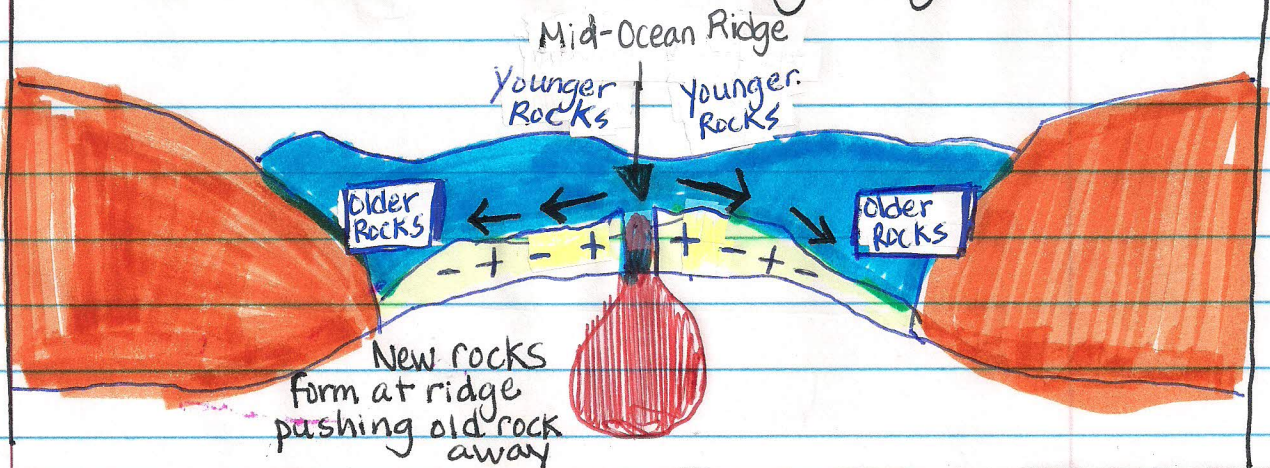 Mid-Ocean Ridge
Younger
Rocks
Younger.
Rocks
older
Rocks
older
Rocks
- + - +
+ - + -
New rocks
form at ridge
pushing old rock
away